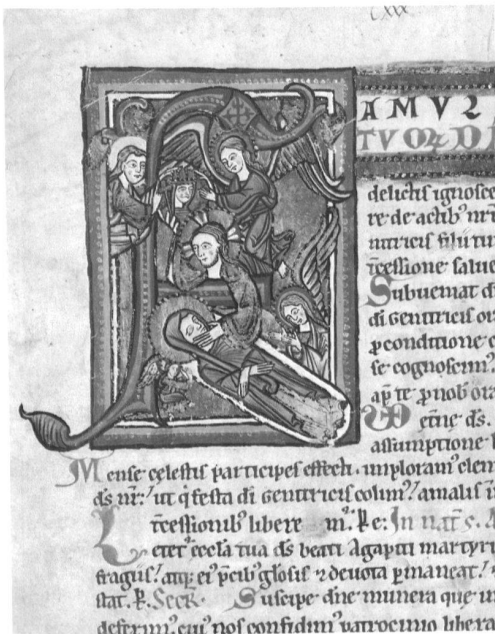 cxx
AMUL
TUORD
delictis ignosce
re de actib' nr̄i
nitricis filii tui
t̄cessione salue
Subueniat d̄
d̄i Genitricis or
p conditione c
se cognoscim'
ap te p nob' ora
et̄ne ds.
assumptione
Mense celestis participes effecti. imploram' clem
ds nr̄: ut q̄ festa d̄i genitricis colim'? a malis
t̄cessionib' libere m'. P e: In nat s.
Letet' eccl̄a tua ds beati Agapiti martyri
fragiis? atq; ei' p̄cib' gl̄osis ⁊ deuota pmaneat?
stat. P. Secr. Suscipe dn̄e munera que in
deferim'. cui' nos confidim' patrocinio libera